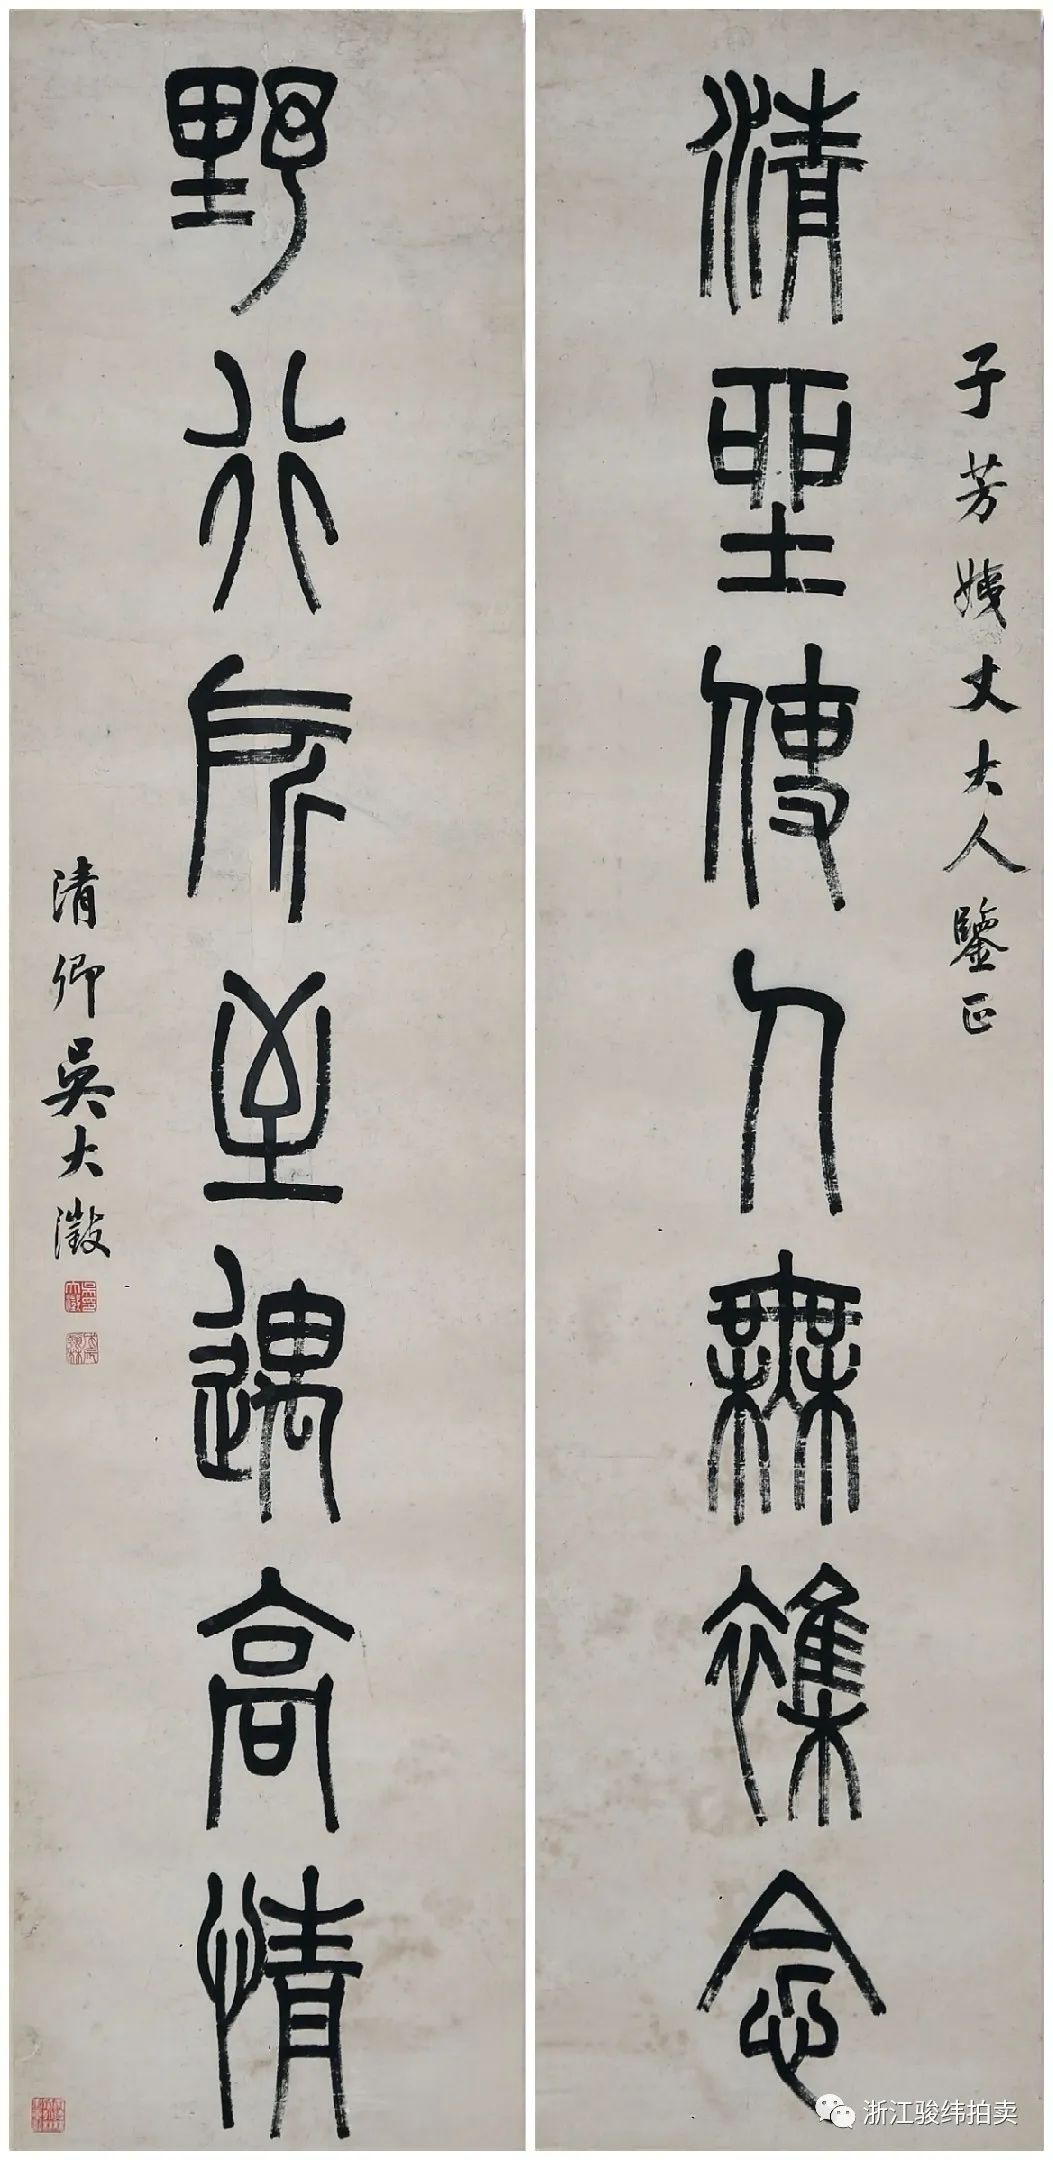 子芳姨丈大人鑒正
清坐使人無雜念
野行所至遇高情
清卿吳大澂
浙江骏纬拍卖